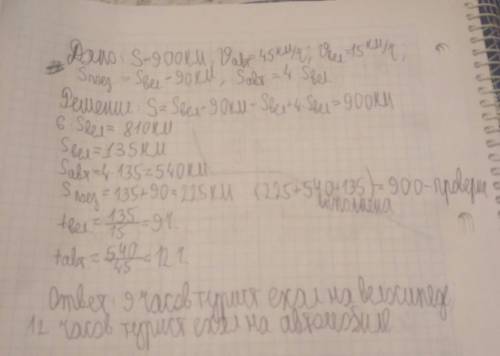 Дано: S=900км, υавт=45км/ч; υвел=15км/ч,
Sпоез = Sвел - 90км, Sавт=4 Sвел
Решение: S=Sвел-90км - Sвел+4·Sвел=900км
6·Sвел= 810км
Sвел=135км
Sавт=4·135=540км
Sпоез=135+90=225км (225+540+135)=900-проверка
tвел=135/15=9ч.
tавт=540/45=12ч.
Ответ: 9 часов турист ехал на велосипед
12 часов турист ехал на автомобиле